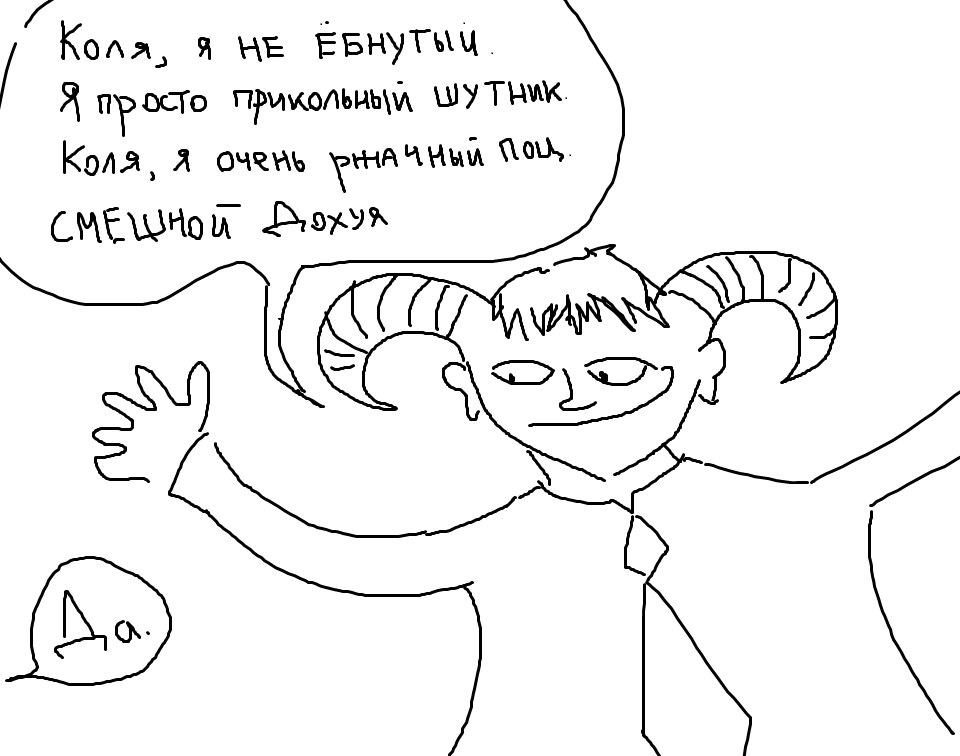 Коля, я НЕ ЁБНУТЫЙ.
Я просто прикольный шутник.
Коля, я очень ржачный поц.
СМЕШНОЙ ДОХУЯ
Да.